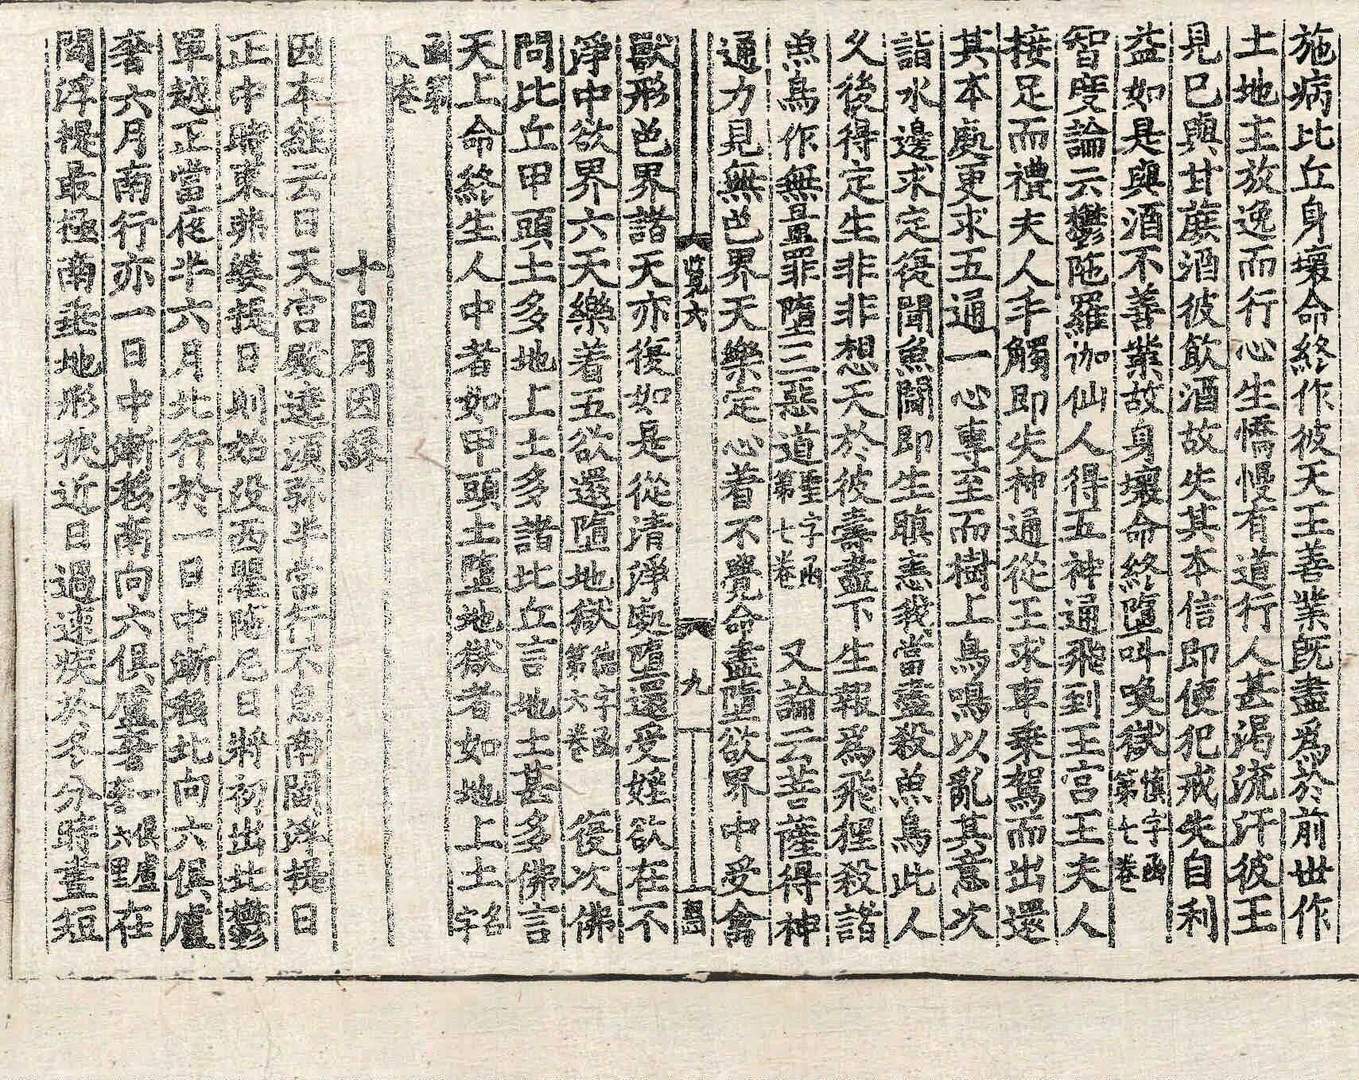 施病比丘身壞命終作彼天王善業既盡爲於前世作
土地主放逸而行心生憍慢有道行人甚渴流汗彼王
見已與甘蔗酒彼飲酒故失其本信即便犯戒失自利
益如是與酒不善業故身壞命終墮叫喚獄慎字函第七卷
智度論云欝陁羅伽仙人得五神通飛到王宮王夫人
接足而禮夫人手觸即失神通從王求車乘駕而出還
其本處更求五通一心專至而樹上鳥鳴以亂其意次
詣水邊求定復聞魚鬪即生瞋恚我當盡殺魚鳥此人
久後得定生非非想天於彼壽盡下生報爲飛狸殺諸
魚鳥作無量罪墮三惡道聖字函第七卷 又論云菩薩得神
通力見無色界天樂定心着不覺命盡墮欲界中受禽
覽六 九
獸形色界諸天亦復如是從清淨處墮還受婬欲在不
淨中欲界六天樂着五欲還墮地獄德字函第六卷 復次佛
問比丘甲頭土多地上土多諸比丘言地土甚多佛言
天上命終生人中者如甲頭土墮地獄者如地上土名字
函第八卷
十日月因緣
因本經云日天宮殿遶須弥半當行不息南閻浮提日
正中時東弗婆提日則始没西瞿陁尼日將初出北欝
單越正當夜半六月北行於一日中漸移北向六俱盧
奢六月南行亦一日中漸移南向六俱盧奢一俱盧奢六里在
閻浮提最極南垂地形狹近日過速疾於冬分時晝短